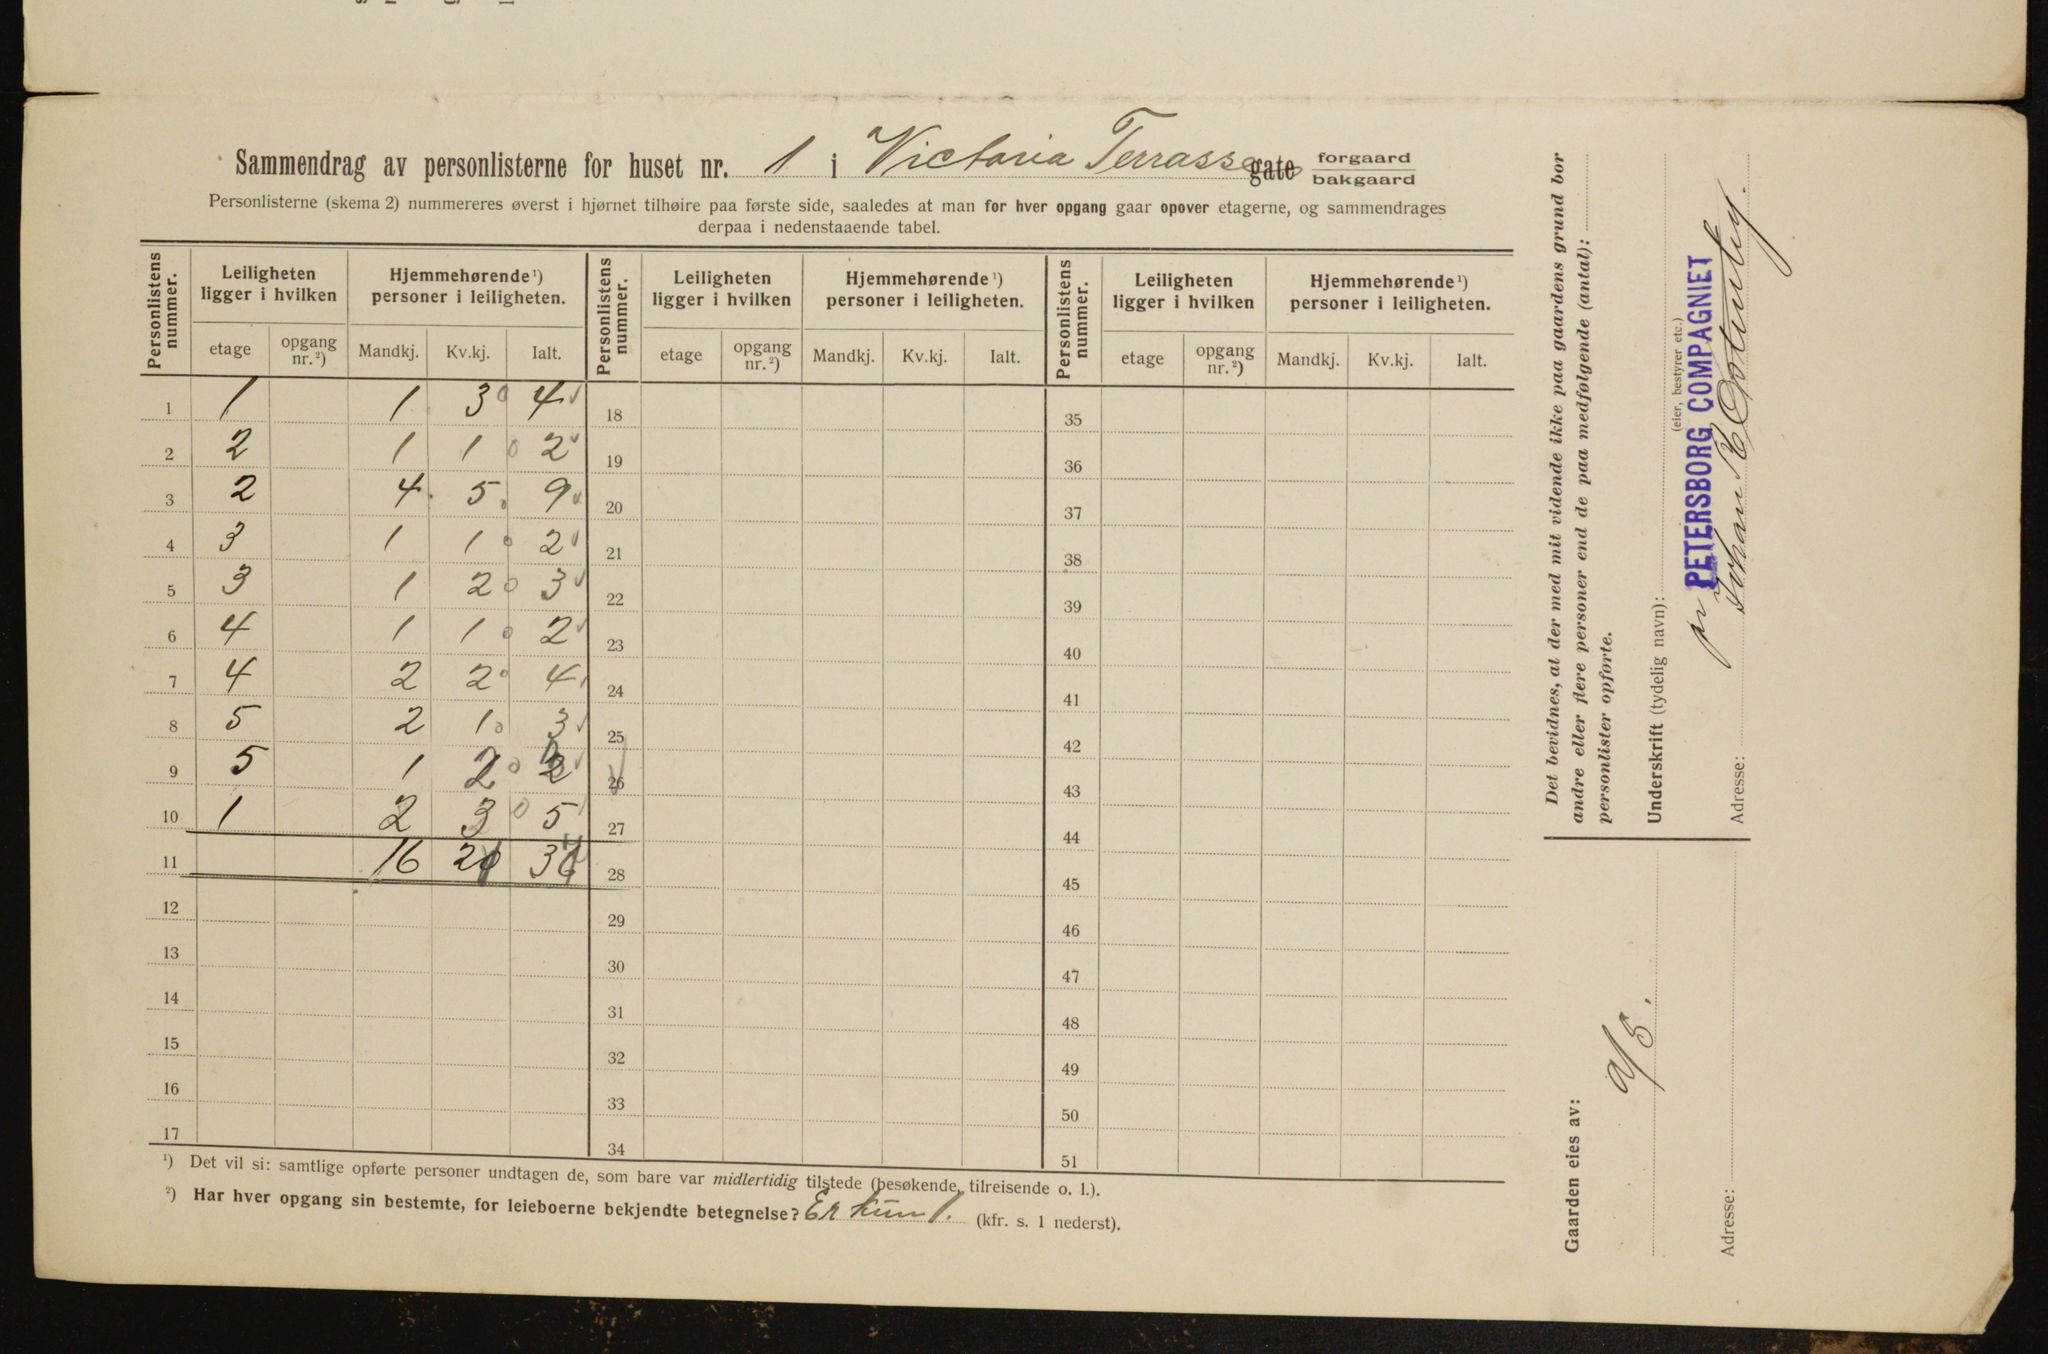 Sammendrag av personlisterne for huset nr. 1 i Victoria Terrasse gate forgaard bakgaard
Personlisterne (skema 2) nummereres øverst i hjørnet tilhøire paa første side, saaledes at man for hver opgang gaar opover etagerne, og sammendrages
derpaa i nedenstaaende tabel.
Personlistens nummer. Leiligheten ligger i hvilken Hjemmehørende ¹) personer i leiligheten. Personlistens nummer. Leiligheten ligger i hvilken Hjemmehørende ¹) personer i leiligheten. Personlistens nummer. Leiligheten ligger i hvilken Hjemmehørende ¹) personer i leiligheten.
etage opgang nr. ²) Mandkj. Kv.kj. Ialt. etage opgang nr. ²) Mandkj. Kv.kj. Ialt. etage opgang nr. ²) Mandkj. Kv.kj. Ialt.
1 1 1 3 4 18 35
2 2 1 1 2 19 36
3 2 4 5 9 20 37
4 3 1 1 2 21 38
5 3 1 2 3 22 39
6 4 1 1 2 23 40
7 4 2 2 4 24 41
8 5 2 1 3 25 42
9 5 1 2 26 43
10 1 2 3 5 27 44
11 16 28 45
12 29 46
13 30 47
14 31 48
15 32 49
16 33 50
17 34 51
¹) Det vil si: samtlige opførte personer undtagen de, som bare var midlertidig tilstede (besøkende, tilreisende o. l.).
²) Har hver opgang sin bestemte, for leieboerne bekjendte betegnelse? Er kun 1. (kfr. s. 1 nederst).
Det bevidnes, at der med mit vidende ikke paa gaardens grund bor
andre eller flere personer end de paa medfølgende (antal):
personlister opførte.
Underskrift (tydelig navn):
(eier, bestyrer etc.)
pr PETERSBORG COMPAGNIET
Johan
Adresse:
Gaarden eies av:
a/s.
Adresse: